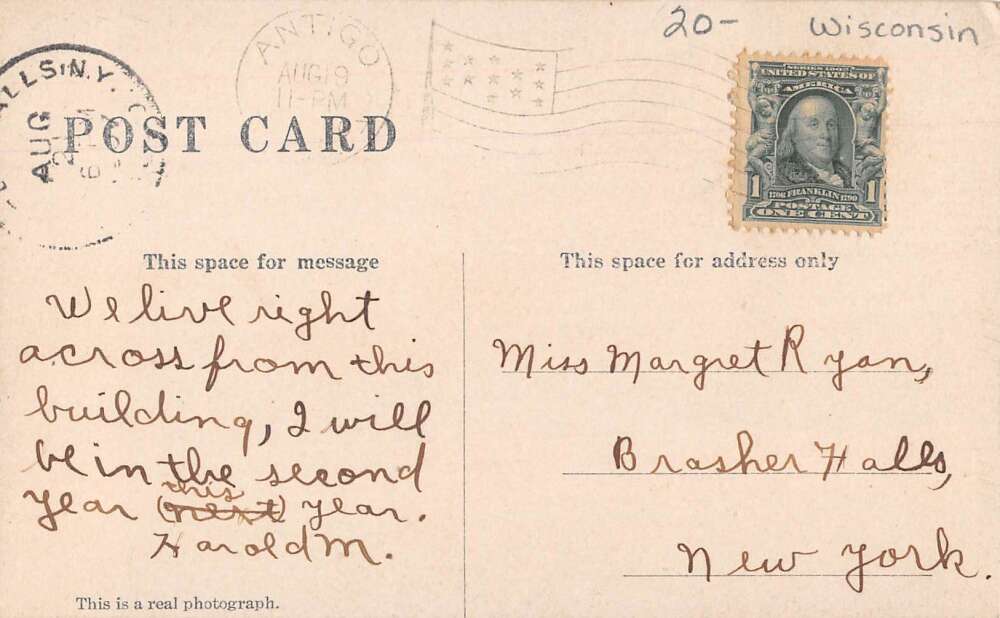 20- Wisconsin
ANTIGO
AUG 19
11-PM
LLS N.Y.
AUG
POST CARD
SERIES 1902
UNITED STATES OF
AMERICA
1 1
1706 FRANKLIN 1790
POSTAGE
ONE CENT
This space for message
We live right
across from this
building, I will
be in the second
year (this next) year.
Harold M.
This is a real photograph.
This space for address only
Miss Margret Ryan,
Brasher Falls,
New York.